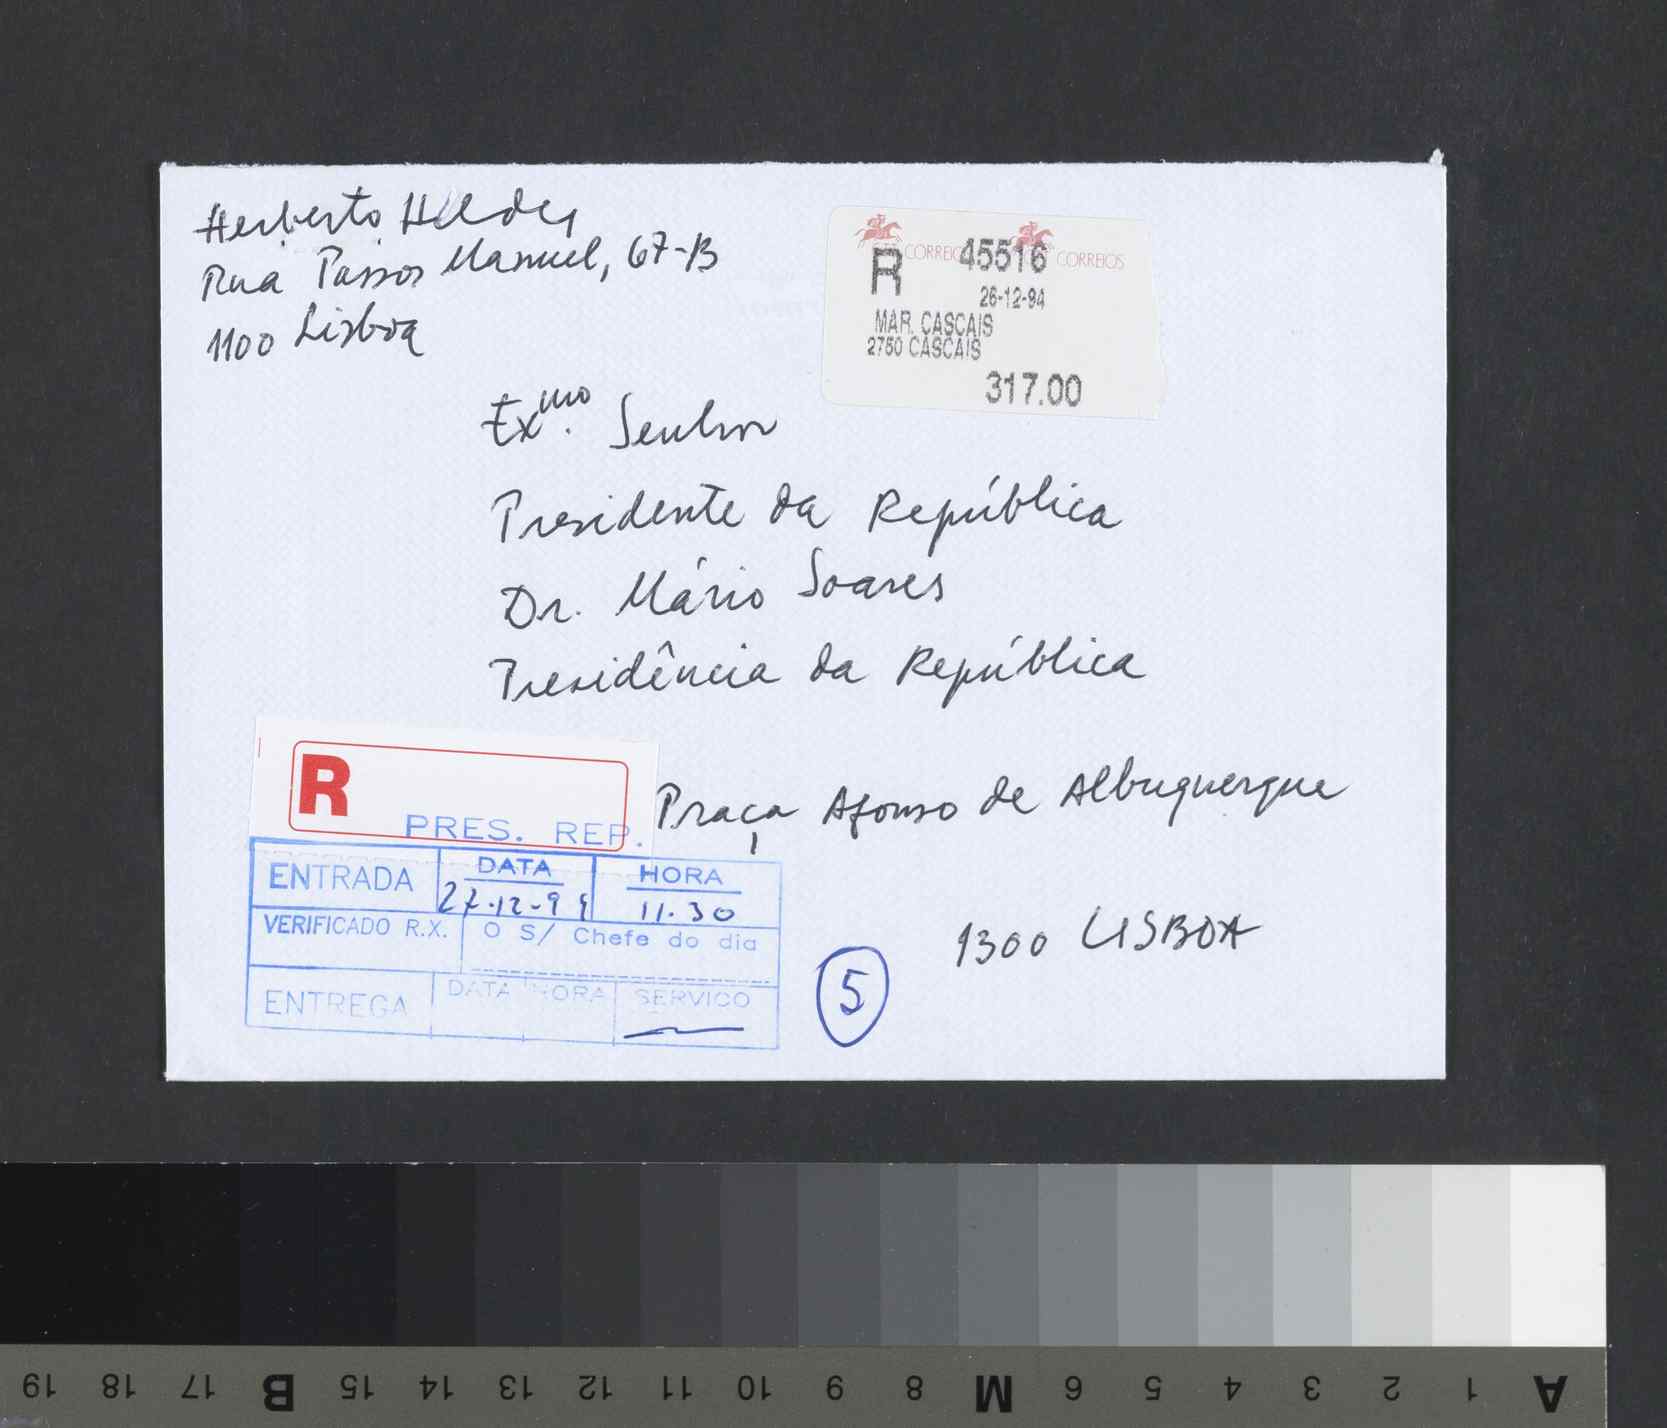 Herberto Helder
Rua Passos Manuel, 67-B
1100 Lisboa
CORREIOS CORREIOS
R 45516
26-12-94
MAR. CASCAIS
2750 CASCAIS
317.00
Exmo. Senhor
Presidente da República
Dr. Mário Soares
Presidência da República
Praça Afonso de Albuquerque
1300 LISBOA
R
PRES. REP.
ENTRADA DATA HORA
27-12-94 11.30
VERIFICADO R.X. O S/ Chefe do dia
ENTREGA DATA HORA SERVICO
5
19 18 17 B 15 14 13 12 11 10 9 8 M 6 5 4 3 2 1 A